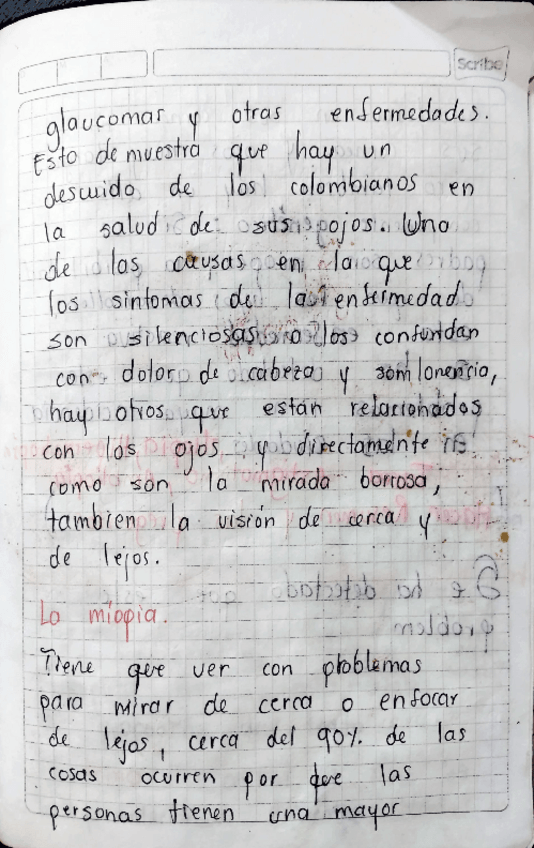 Scribe
glaucomas y otras enfermedades.
Esto demuestra que hay un
descuido de los colombianos en
la salud de sus ojos. Uno
de las causas en la que
los sintomas de la enfermedad
son silenciosas o los confundan
con dolor de cabeza y somlonencia,
hay otros que están relacionados
con los ojos y directamente
como son la mirada borrosa,
tambien la visión de cerca y
de lejos.
La miopia.
Tiene que ver con problemas
para mirar de cerca o enfocar
de lejos, cerca del 90% de las
cosas ocurren por que las
personas tienen una mayor